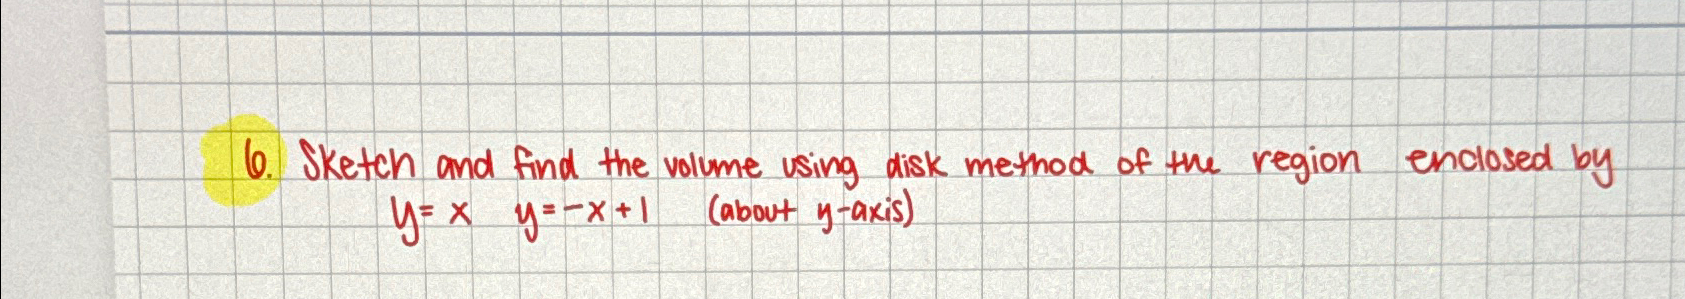 6. Sketch and find the volume using disk method of the region enclosed by
y = x y = -x + 1 (about y-axis)